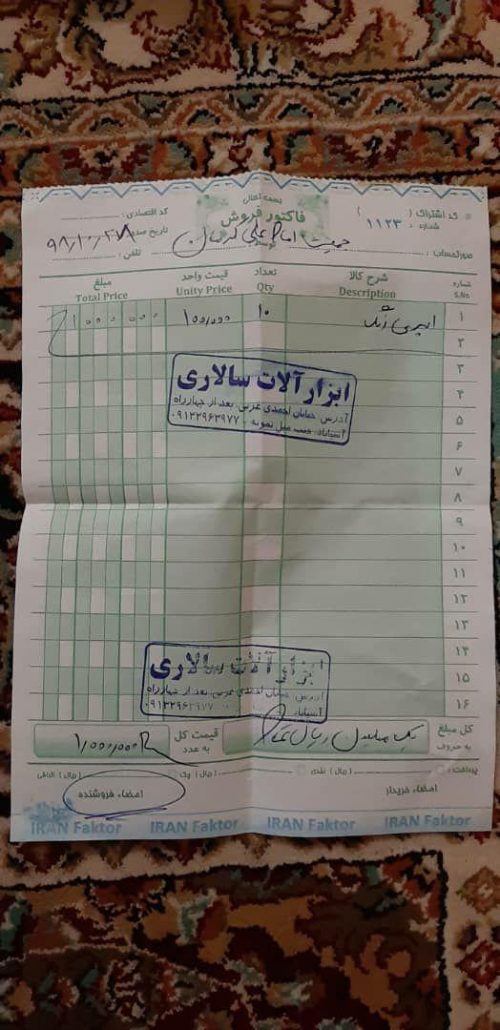 بسمه تعالی
فاکتور فروش
کد اشتراک ( )
شماره : ۱۱۲۳
کد اقتصادی :
تاریخ ۹۸/۱۰/۲۸
صورتحساب : جمعیت امام علی کرمان
تلفن :
شماره S.No شرح کالا Description تعداد Qty قیمت واحد Unity Price مبلغ Total Price
۱ ۱۰ ۱۰۰/۰۰۰ ۱۰۰۰۰۰۰
۲
۳
۴
۵
۶
۷
۸
۹
۱۰
۱۱
۱۲
۱۳
۱۴
۱۵
۱۶
ابزار آلات سالاری
آدرس: خیابان احمدی غربی بعد از چهارراه
۰۹۱۳۲۹۶۳۹۷۷
ابزار آلات سالاری
آدرس: خیابان احمدی غربی بعد از چهارراه
۰۹۱۳۲۹۶۳۹۷۷
کل مبلغ به حروف یک میلیون ریال تمام
قیمت کل به عدد ۱,۰۰۰,۰۰۰R
پرداخت : (ریال) نقدی (ریال) چک (ریال) الباقی
امضاء خریدار
امضاء فروشنده
IRAN Faktor IRAN Faktor IRAN Faktor IRAN Faktor